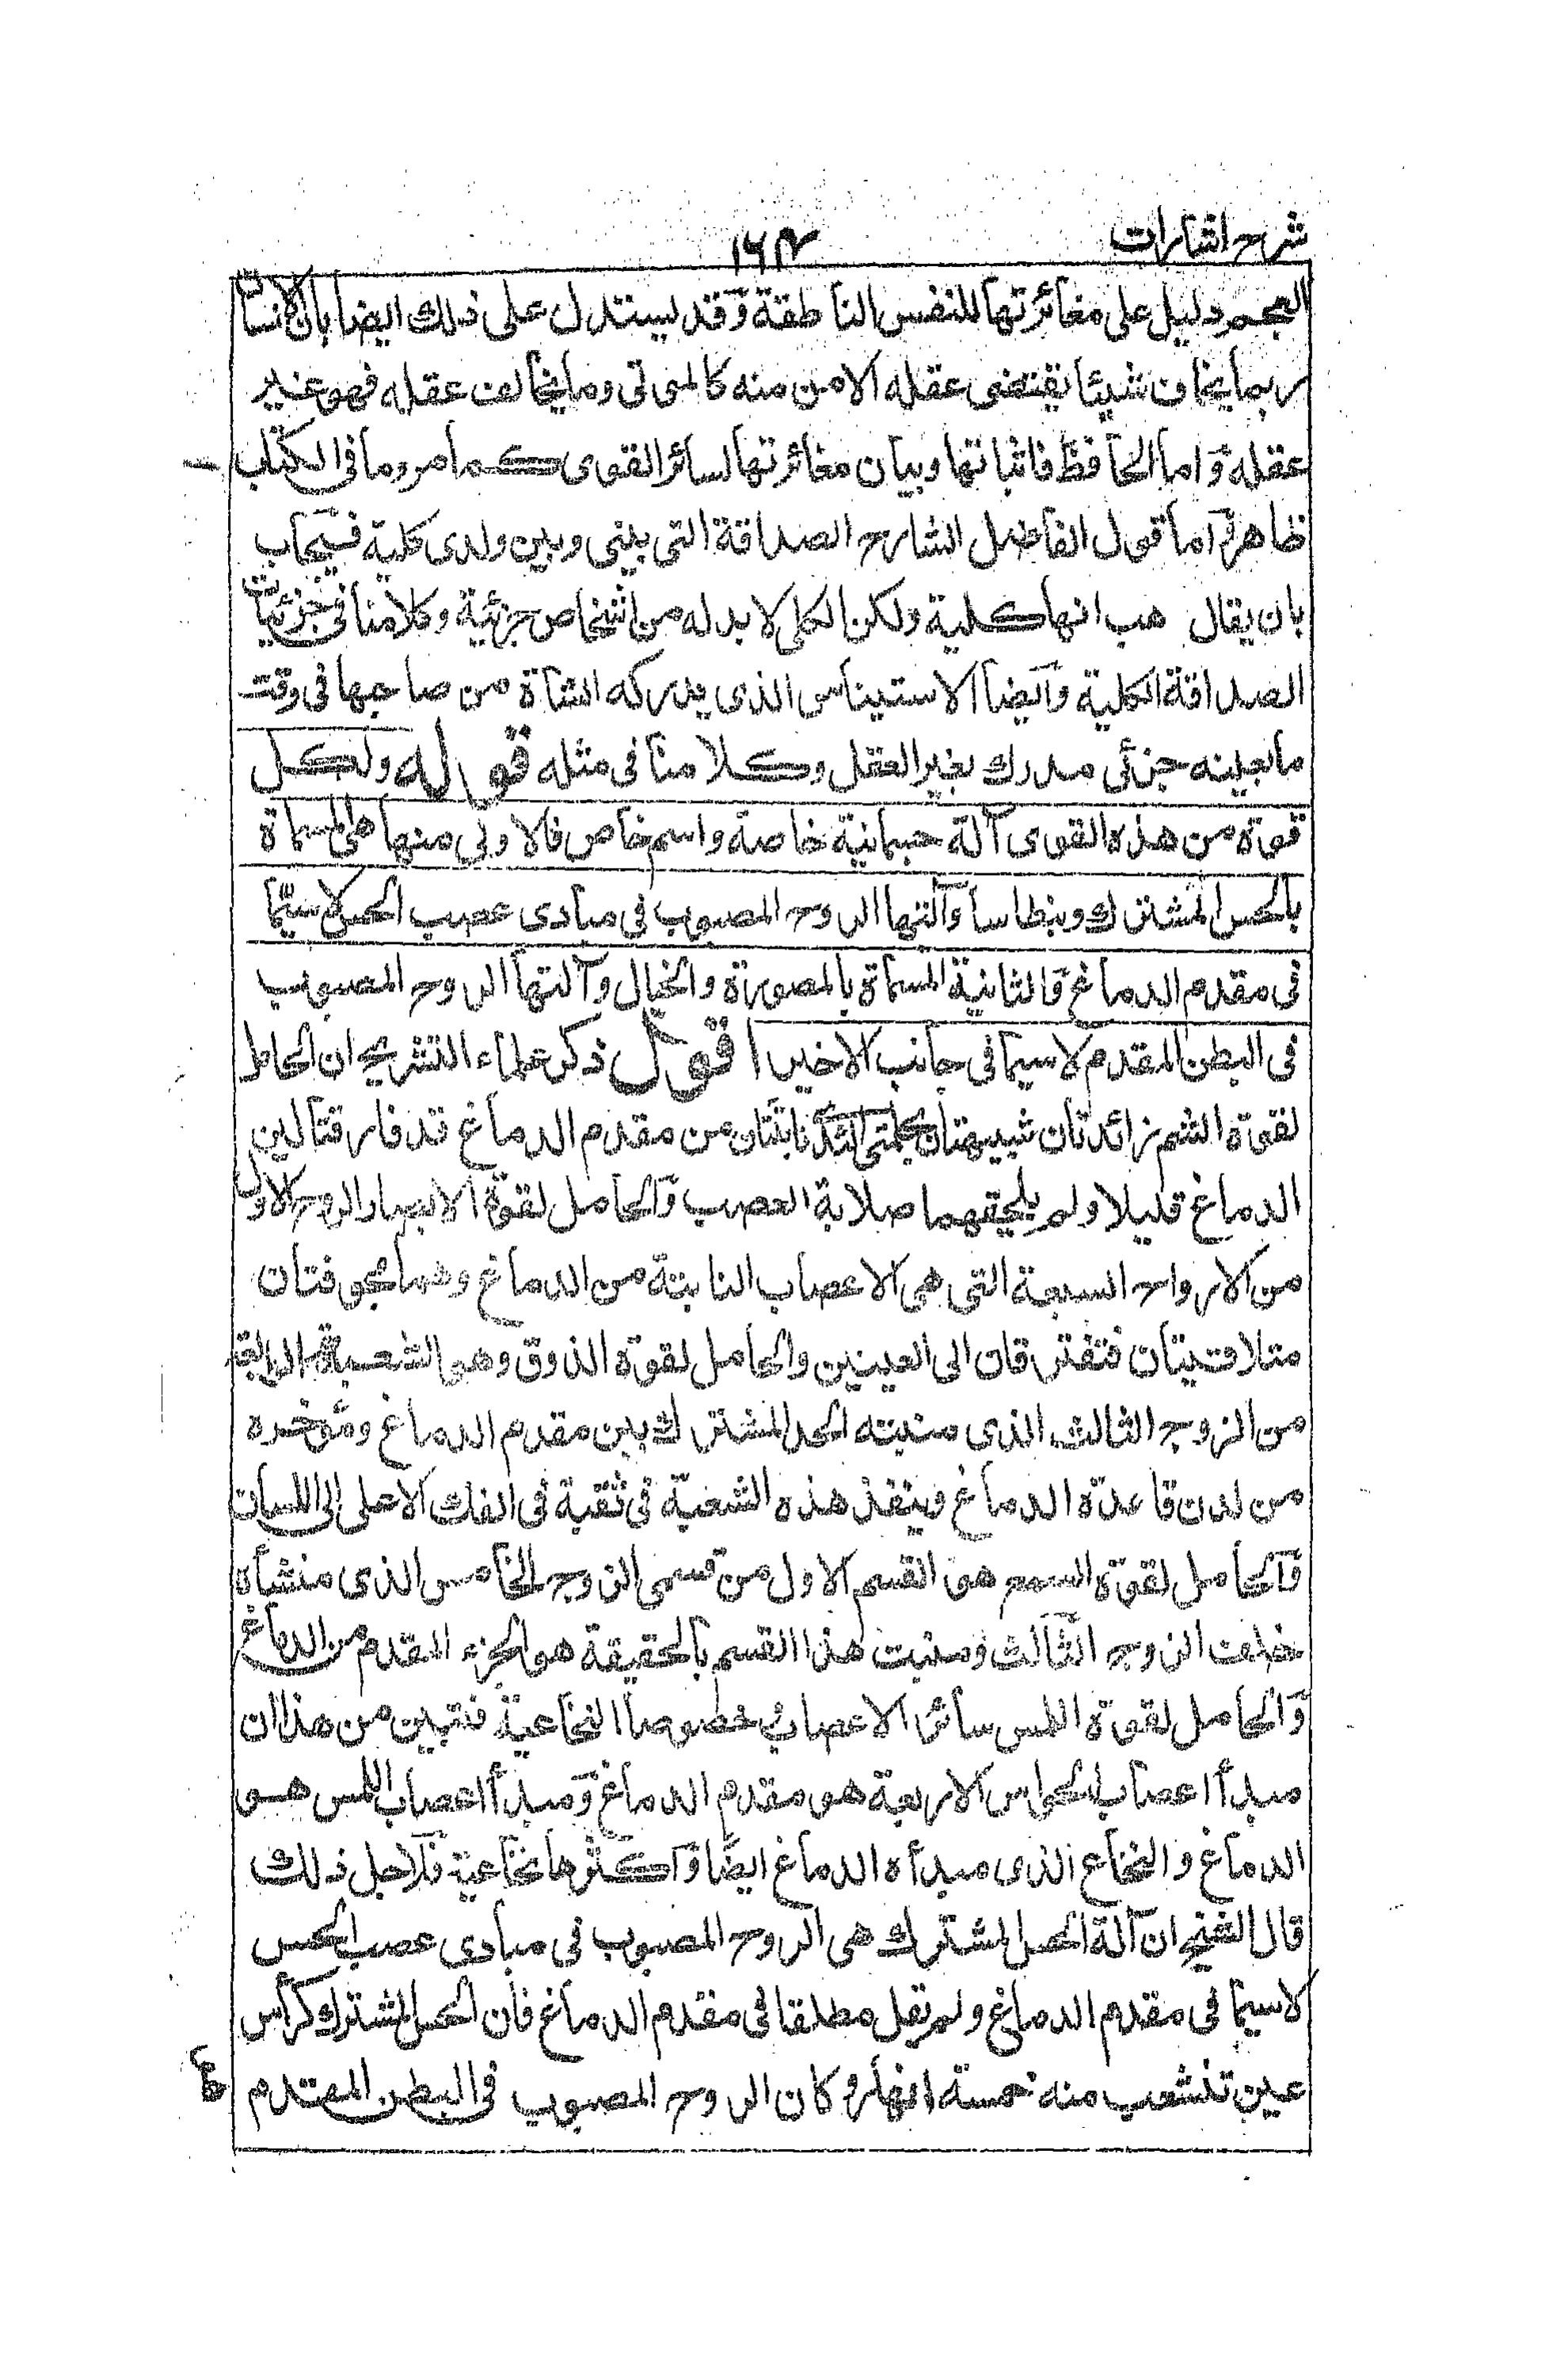 شرح اشارات
١٦٣
العجم دليل على مغائرتها للنفس الناطقة وقد يستدل على ذلك ايضا بان الانسان
ربما يخاف شيئا يقتضى عقله الامن منه كالموتى وما يخالف عقله فهو غير
عقله واما الحافظ فاثباتها وبيان مغائرتها لسائر القوى كما مر وما فى الكتاب
ظاهر واما قول الفاضل الشارح الصداقة التى بينى وبين ولدى كلية فيجاب
بان يقال هب انها كلية ولكن الكلى لا بد له من اشخاص جزئية وكلامنا فى جزئيات
الصداقة الكلية وايضا الاستيناس الذى يدركه الشاة من صاحبها فى وقت
ما بعينه جزئى مدرك بغير العقل وكلامنا فى مثله قوله ولكل
قوة من هذه القوى آلة جسمانية خاصة واسم خاص فالاولى منها هى المسماة
بالحس المشترك وبنطاسا وآلتها الروح المصبوب فى مبادى عصب الحس لا سيما
فى مقدم الدماغ والثانية المسماة بالمصورة والخيال وآلتها الروح المصبوب
فى البطن المقدم لا سيما فى جانب الاخير اقول ذكر علماء التشريح ان الحامل
لقوة الشم زائدتان شبيهتان بحلمتى الثدى نابتتان من مقدم الدماغ قد فارقتا لين
الدماغ قليلا ولم يلحقهما صلابة العصب والحامل لقوة الابصار الزوج الاول
من الازواج السبعة التى هى الاعصاب النابتة من الدماغ وهما مجوفتان
متلاقيتان فتفترقان الى العينين والحامل لقوة الذوق وهو الشعبة الرابعة
من الزوج الثالث الذى منبته الحد المشترك بين مقدم الدماغ ومؤخره
من لدن قاعدة الدماغ وينفذ هذه الشعبة فى ثقبة فى الفك الاعلى الى اللسان
والحامل لقوة السمع هو القسم الاول من قسمى الزوج الخامس الذى منشأه
خلف الزوج الثالث ومنبت هذا القسم بالحقيقة هو الجزء المقدم من الدماغ
والحامل لقوة اللمس سائر الاعصاب خصوصا النخاعية فتبين من هذا ان
مبدأ اعصاب الحواس الاربعة هو مقدم الدماغ ومبدأ اعصاب اللمس هو
الدماغ والنخاع الذى مبدأه الدماغ ايضا واكثرها نخاعية فلاجل ذلك
قال الشيخ ان آلة الحس المشترك هى الروح المصبوب فى مبادى عصب الحس
لا سيما فى مقدم الدماغ ولم يقل مطلقا فى مقدم الدماغ فان الحس المشترك كرأس
عين تنشعب منه خمسة انهار وكان الروح المصبوب فى البطن المقدم